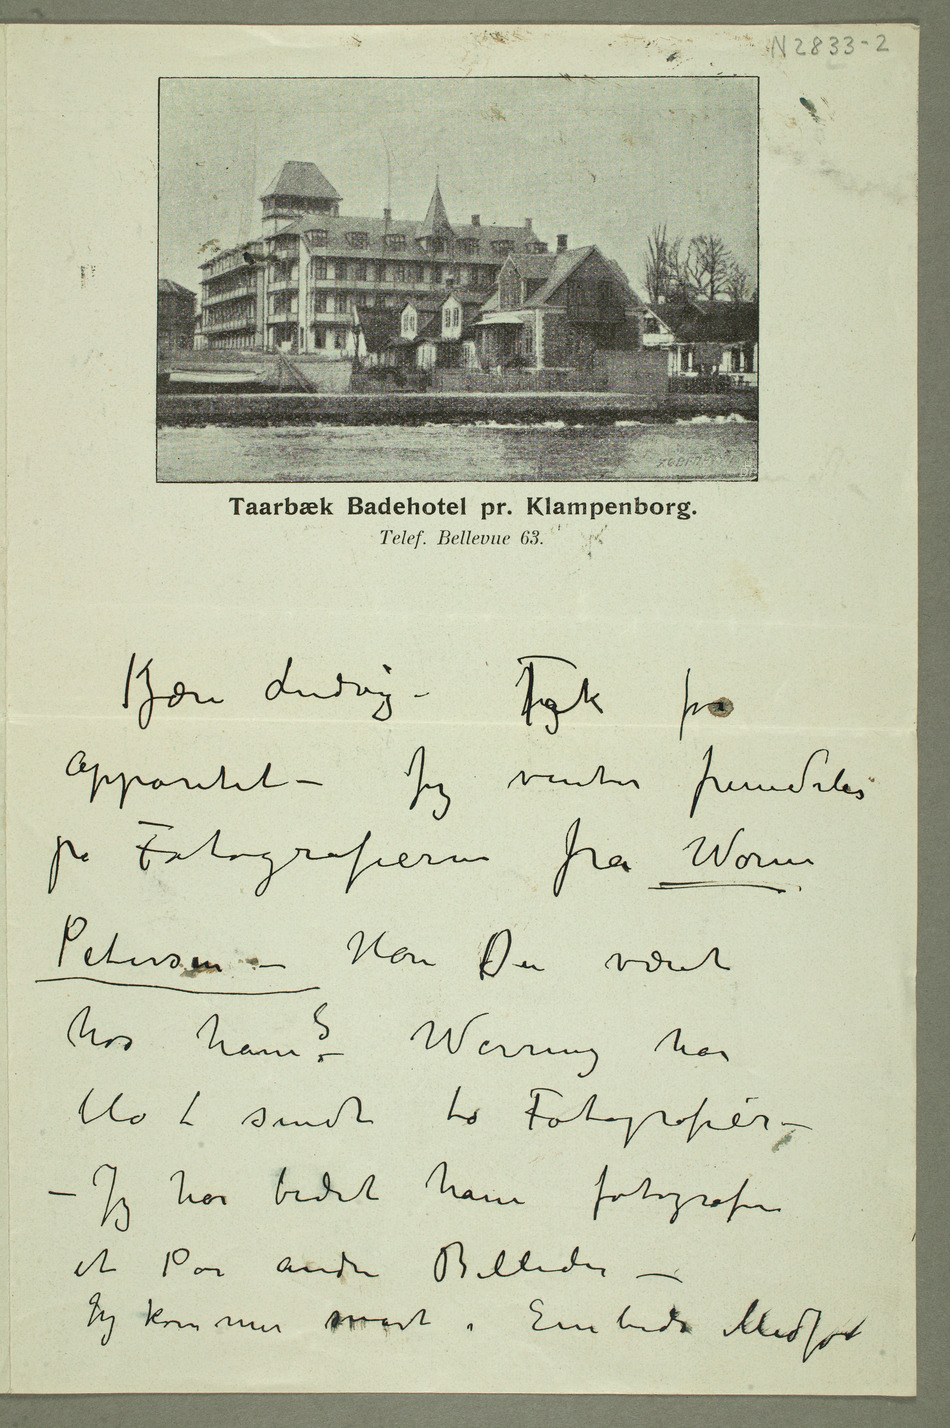 N 2833-2
Taarbæk Badehotel pr. Klampenborg.
Telef. Bellevue 63.
Kjære Ludvig – Tak for
Apparatet – Jeg venter fremdeles
på Fotografierne fra Worm
Petersen – Har Du været
hos ham? – Wærring har
blot sendt to Fotografier –
– Jeg har bedet ham fotografere
et Par andre Billeder –
Jeg kommer snart i Embeds Medfør